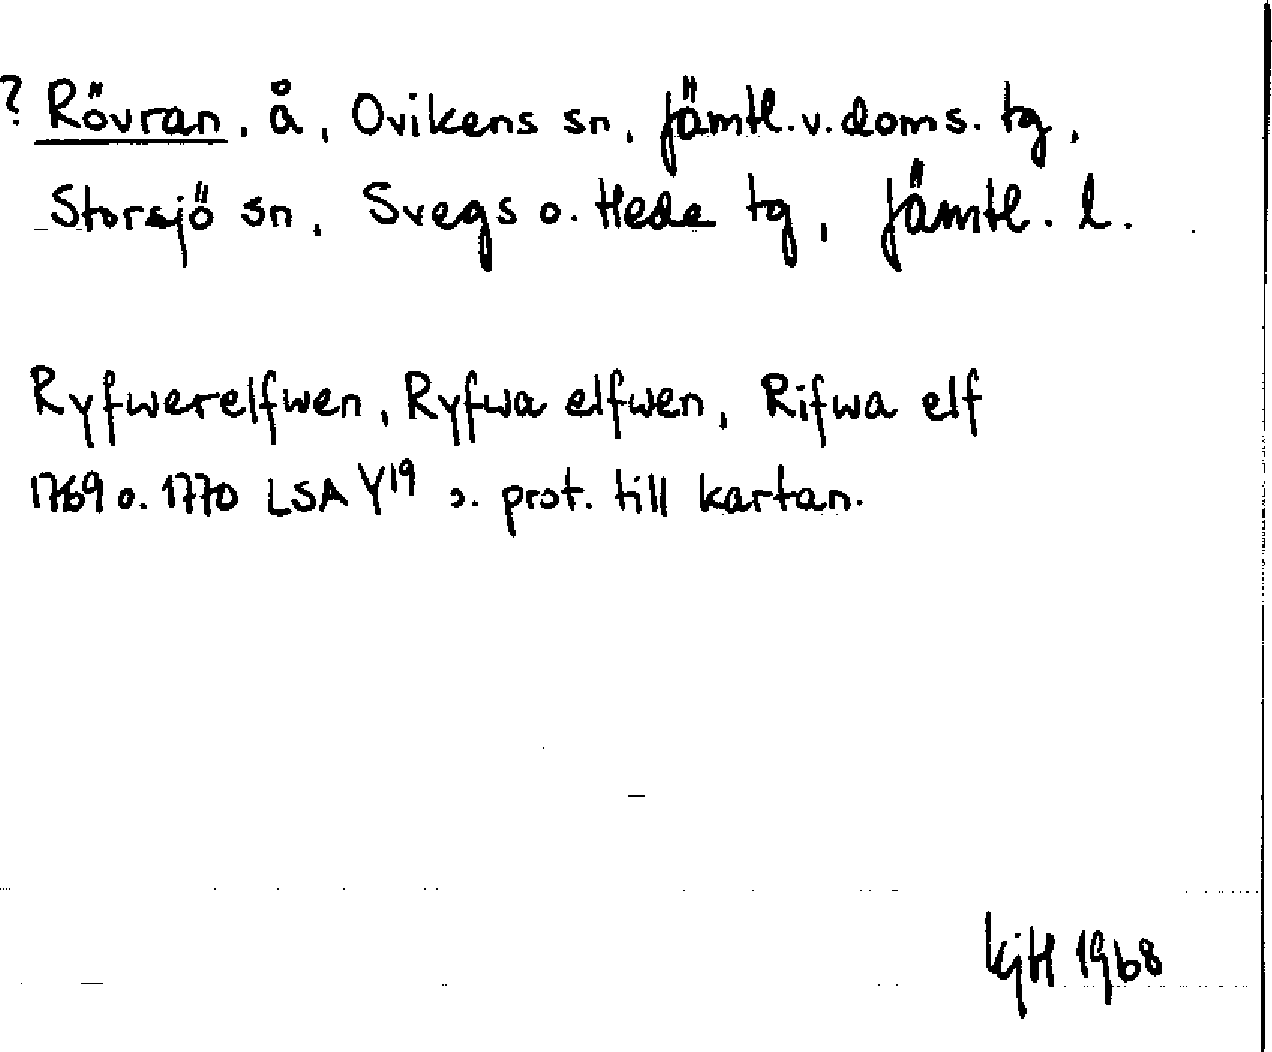 ? Rövran, å, Ovikens sn, Jämtl. v. doms. tg,
Storsjö sn, Svegs o. Hede tg, Jämtl. l.
Ryfwerelfwen, Ryfwa elfwen, Rifwa elf
1769 o. 1770 LSA Y19 o. prot. till kartan.
KjH 1968